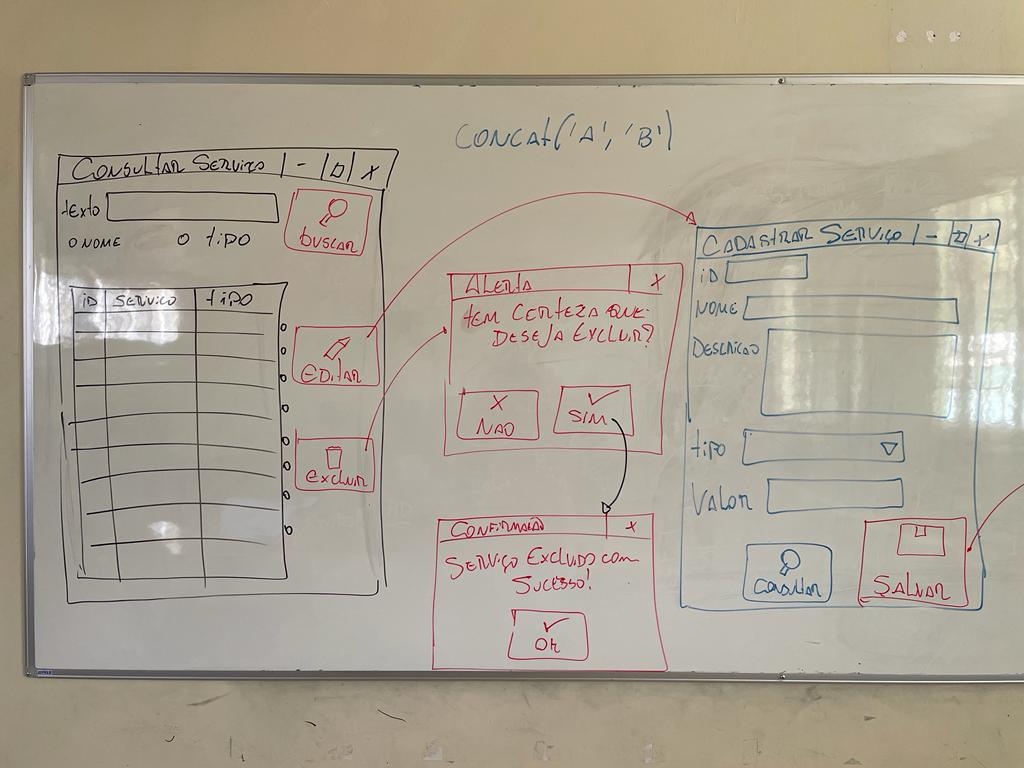 CONCAT('A', 'B')
CONSULTAR SERVIÇO - X
texto
buscar
O NOME O tipo
iD SERVIÇO tipo
EDITAR
Excluir
Alerta X
tEM CERTEZA QUE
DESEJA EXCLUIR?
X
NÃO
SIM
CONFIRMAÇÃO X
SERVIÇO EXCLUIDO com
SUCESSO!
OK
CADASTRAR SERVIÇO - X
iD
NOME
DESCRIÇÃO
tipo
VALOR
CONSULTAR
SALVAR